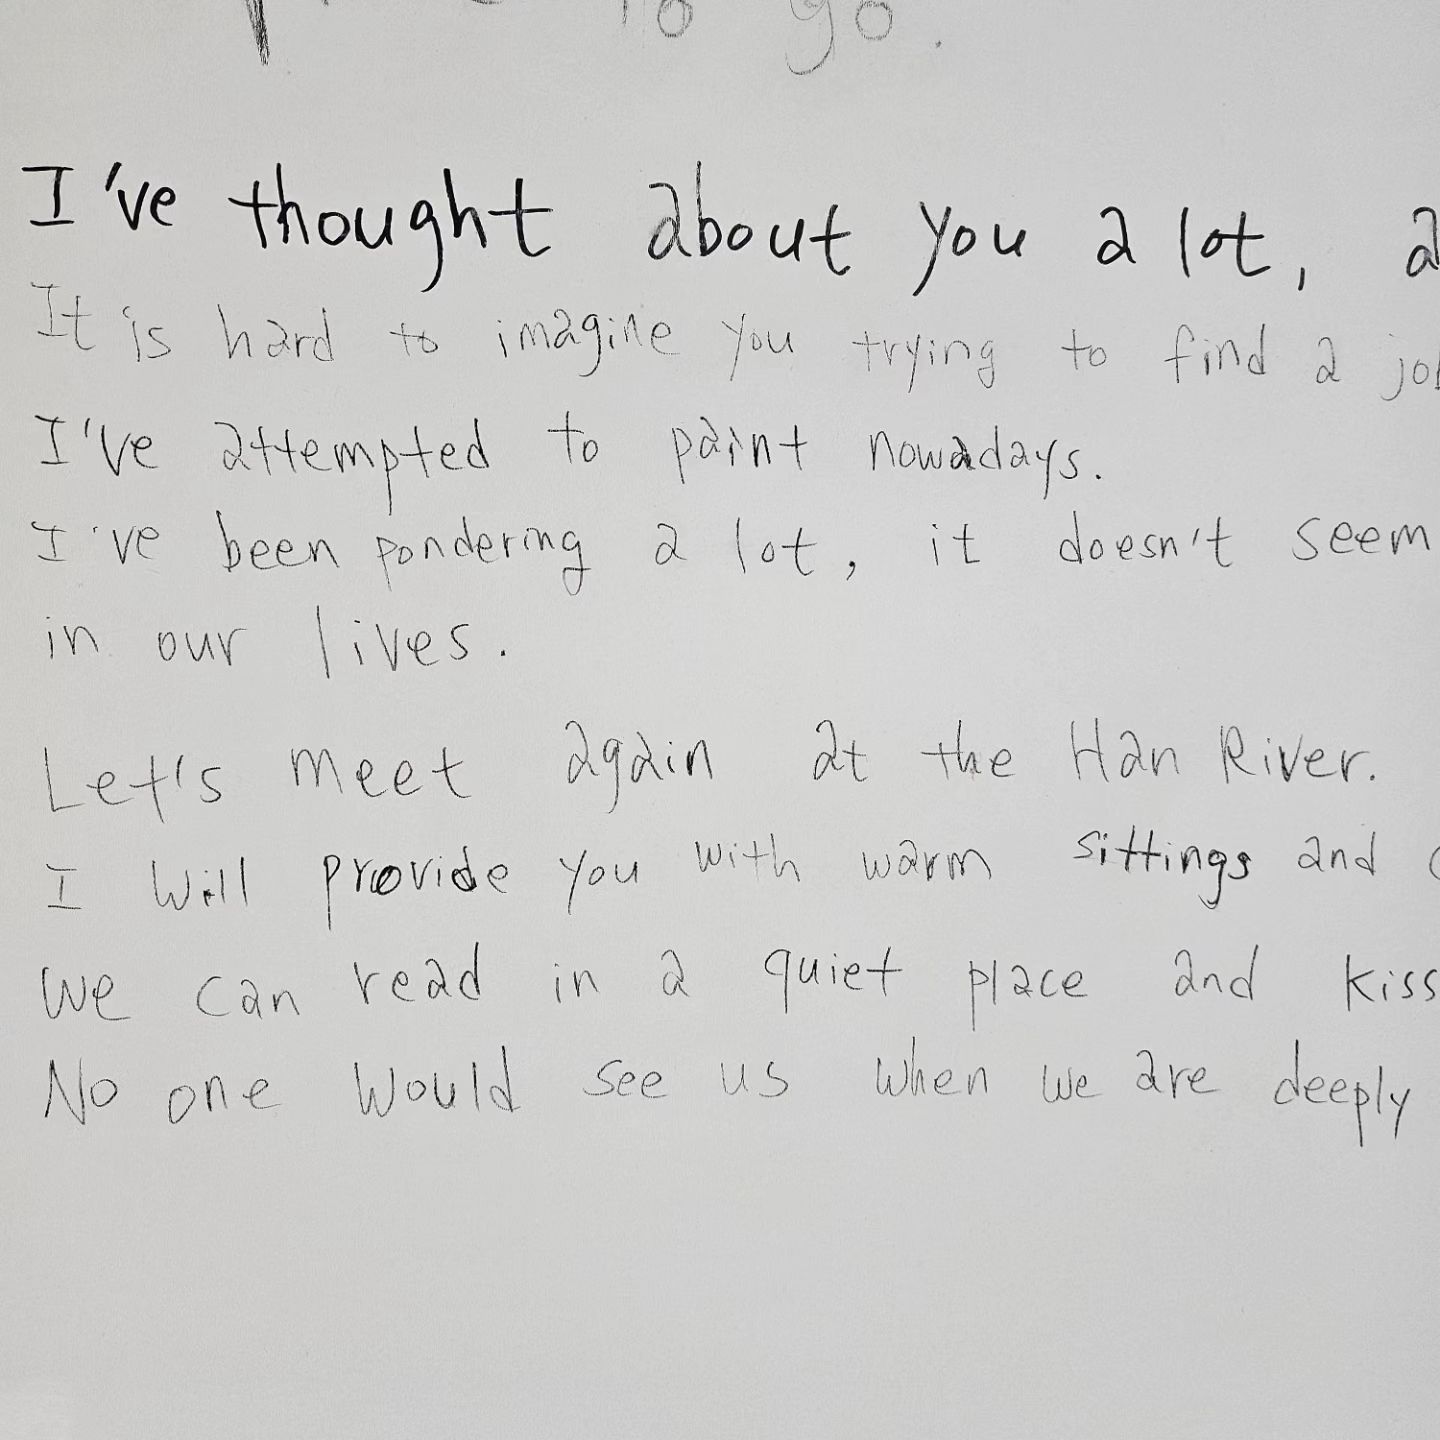 to go.
I've thought about you a lot,
It is hard to imagine you trying to find a job
I've attempted to paint nowadays.
I've been pondering a lot, it doesn't seem
in our lives.
Let's meet again at the Han River.
I will provide you with warm sittings and
we can read in a quiet place and kiss
No one would see us when we are deeply